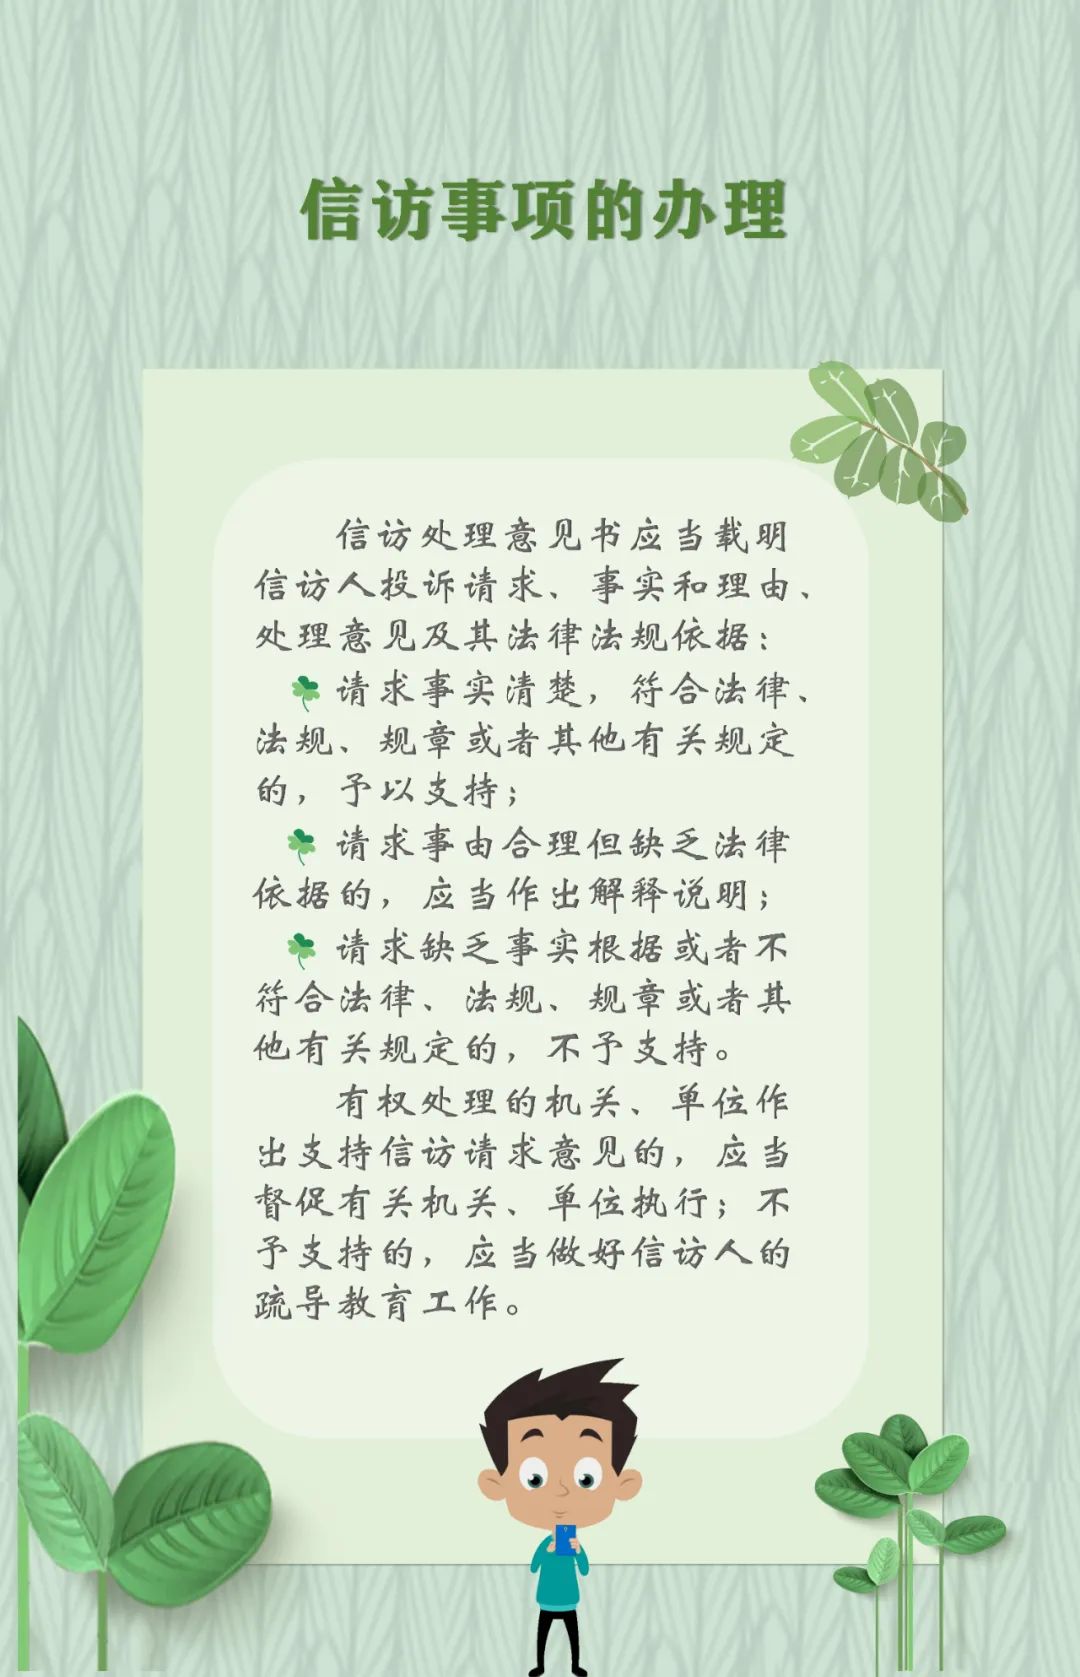 信访事项的办理
信访处理意见书应当载明
信访人投诉请求、事实和理由、
处理意见及其法律法规依据：
请求事实清楚，符合法律、
法规、规章或者其他有关规定
的，予以支持；
请求事由合理但缺乏法律
依据的，应当作出解释说明；
请求缺乏事实根据或者不
符合法律、法规、规章或者其
他有关规定的，不予支持。
有权处理的机关、单位作
出支持信访请求意见的，应当
督促有关机关、单位执行；不
予支持的，应当做好信访人的
疏导教育工作。